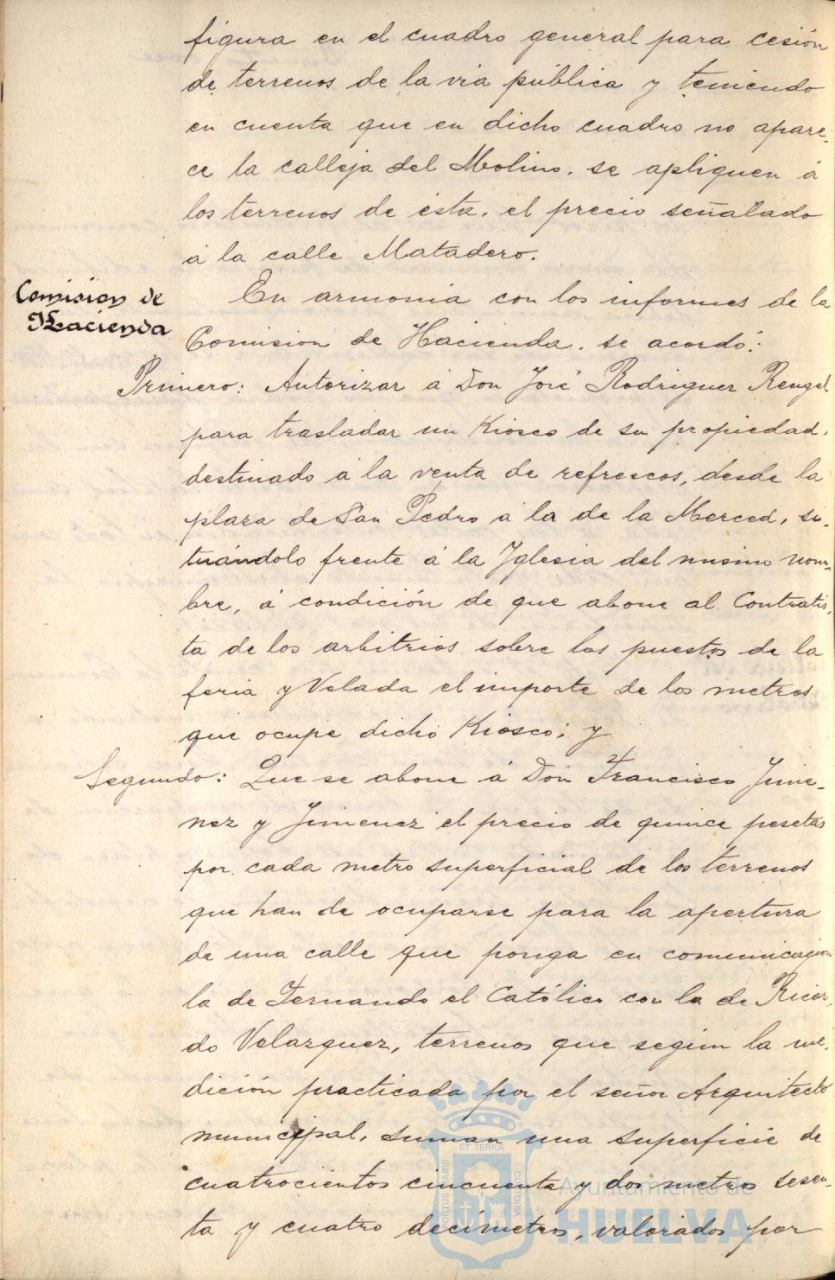 figura en el cuadro general para cesión
de terrenos de la via pública y teniendo
en cuenta que en dicho cuadro no apare-
ce la calleja del Molino, se apliquen á
los terrenos de ésta, el precio señalado
á la calle Matadero.
Comision de
Hacienda
En armonia con los informes de la
Comision de Hacienda, se acordó:
Primero: Autorizar á Don José Rodriguez Rengel
para trasladar un Kiosco de su propiedad,
destinado á la venta de refrescos, desde la
plaza de San Pedro á la de la Merced, si-
tuándolo frente á la Iglesia del mismo nom-
bre, á condición de que abone al Contratis-
ta de los arbitrios sobre los puestos de la
feria y Velada el importe de los metros
que ocupe dicho Kiosco; y
Segundo: Que se abone á Don Francisco Jime-
nez y Jimenez el precio de quince pesetas
por cada metro superficial de los terrenos
que han de ocuparse para la apertura
de una calle que ponga en comunicación
la de Fernando el Católico con la de Ricar-
do Velazquez, terrenos que según la me-
dición practicada por el señor Arquitecto
municipal, suman una superficie de
cuatrocientos cincuenta y dos metros sesen-
ta y cuatro decímetros, valorados por
PORTUS MARIS
ET TERRAE
CUSTODIA
Ayuntamiento de
HUELVA